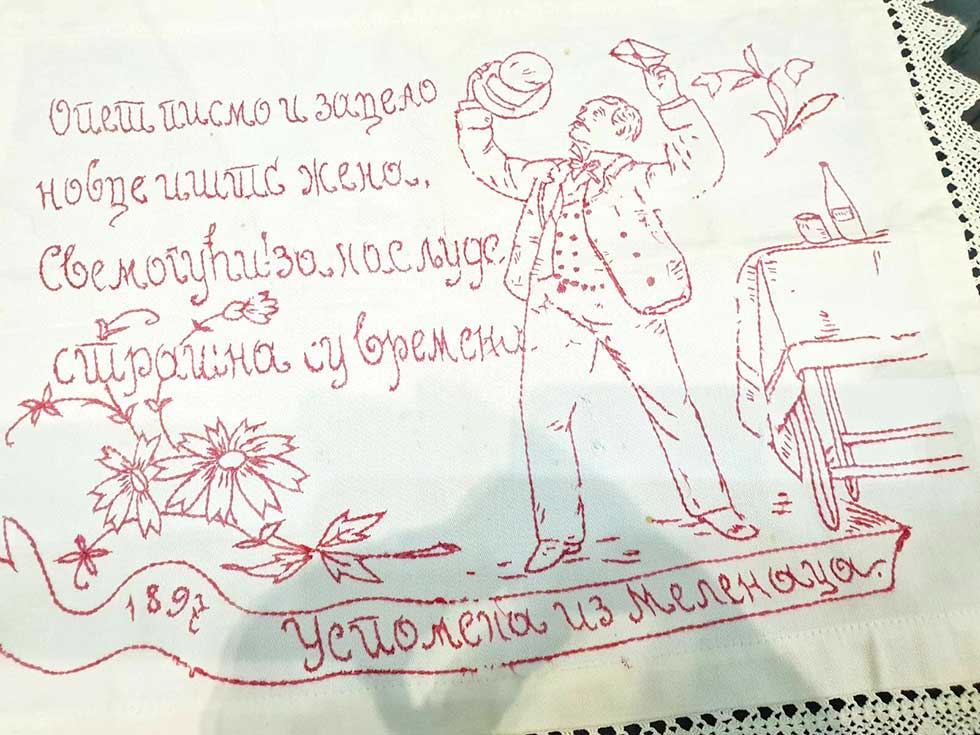 Опет писмо и зацело
новце иште жена.
Свемогући! за нас људе
страшна су времена
1897
Успомена из Меленаца.